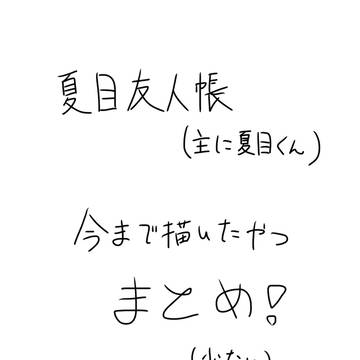 夏目友人帳
(主に夏目くん)
今まで描いたやつ
まとめ!